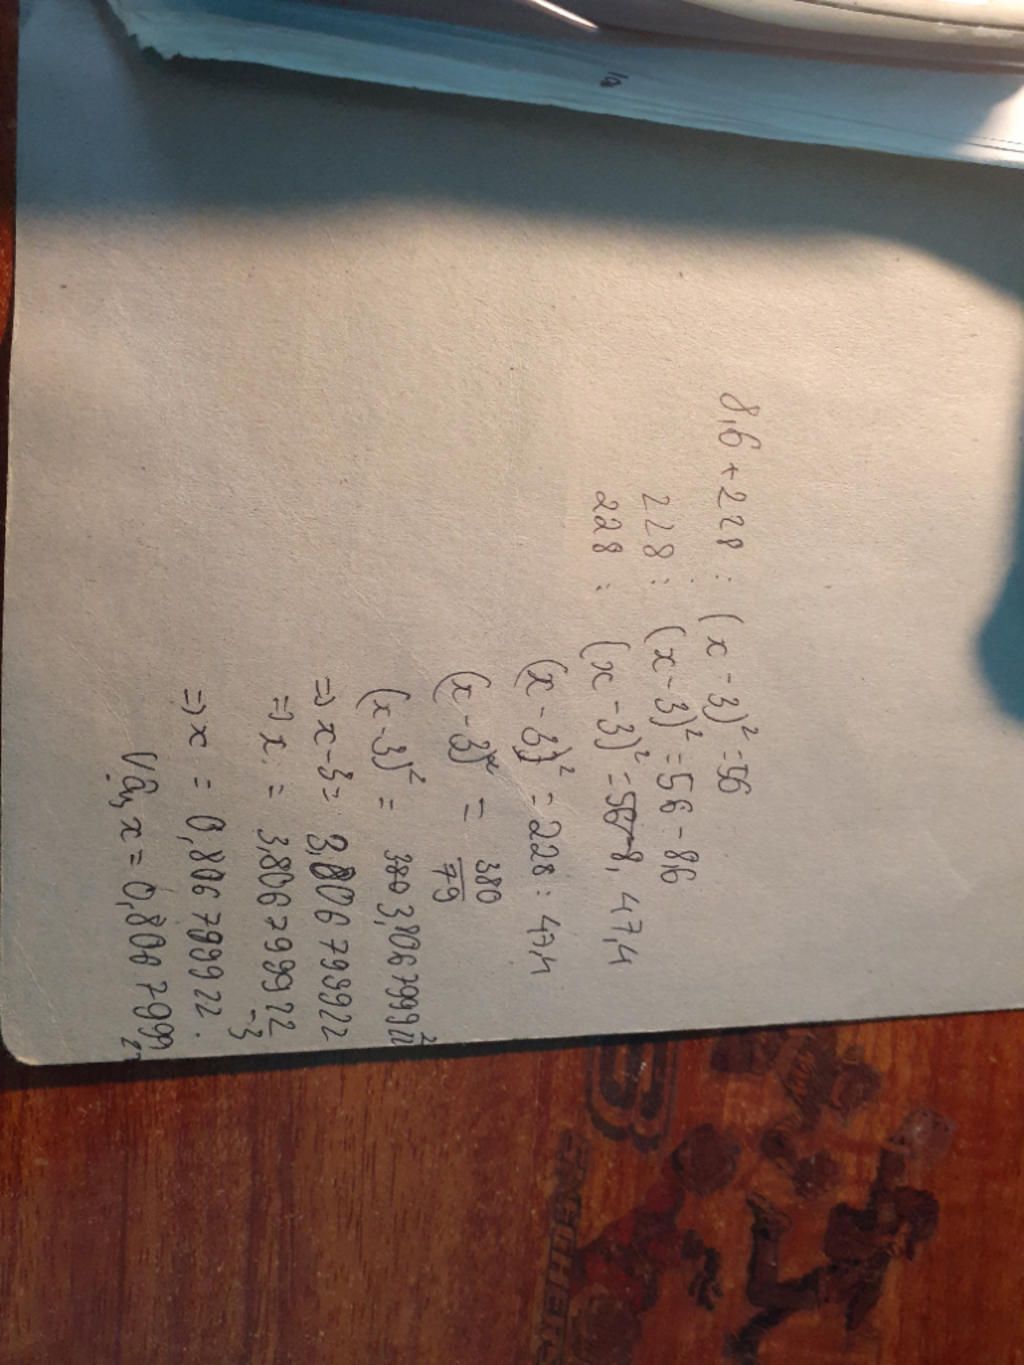 8,6 + 228 : (x - 3)² = 56
228 : (x - 3)² = 56 - 8,6
228 : (x - 3)² = 47,4
(x - 3)² = 228 : 47,4
(x - 3)² = 380/79
(x - 3)² = 3,806799922²
⇒ x - 3 = 3,806799922
⇒ x = 3,806799922 - 3
⇒ x = 0,806799922.
Vậy x = 0,806799922